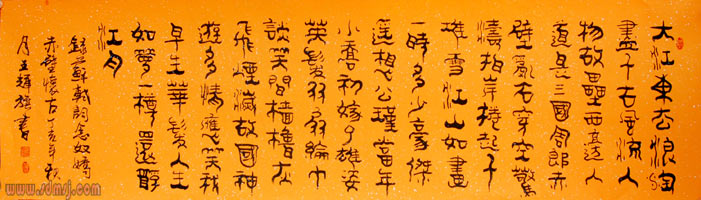 大江東去浪淘
盡千古風流人
物故壘西邊人
道是三國周郎赤
壁亂石穿空驚
濤拍岸捲起千
堆雪江山如畫
一時多少豪傑
遙想公瑾當年
小喬初嫁了雄姿
英發羽扇綸巾
談笑間檣櫓灰
飛煙滅故國神
遊多情應笑我
早生華髮人生
如夢一樽還酹
江月
錄蘇軾詞念奴嬌
赤壁懷古丁亥年秋
月 書
www.sdmsj.com